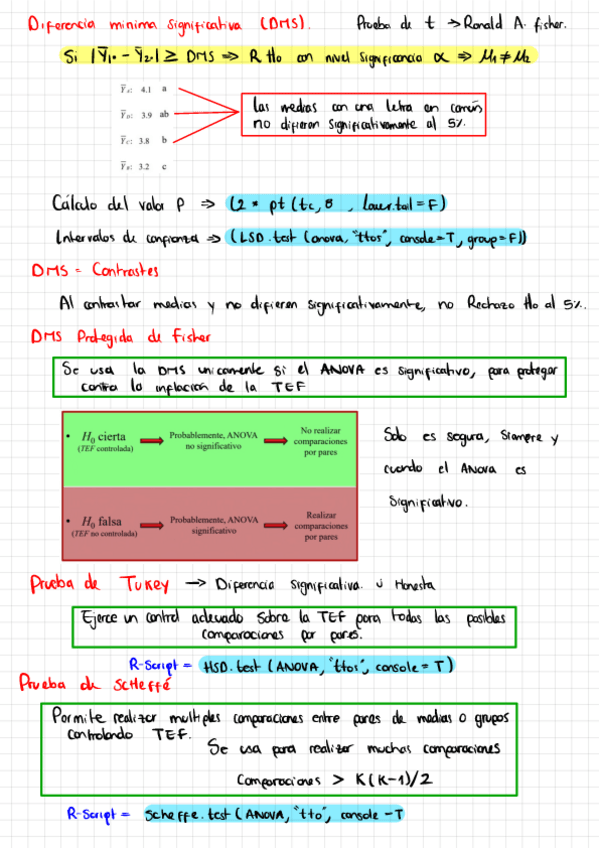 Diferencia minima significativa (DMS). Prueba de t → Ronald A. fisher.
Si |Ȳ1• - Ȳ2•| ≥ DMS ⇒ R Ho con nivel significancia α ⇒ μ1 ≠ μ2
ȲA: 4.1 a
ȲD: 3.9 ab
ȲC: 3.8 b
ȲB: 3.2 c
Las medias con una letra en común
no difieren significativamente al 5%.
Cálculo del valor P ⇒ (2 * pt (tc, 8, lower.tail = F)
Intervalos de confianza ⇒ (LSD.test (anova, "ttos", console=T, group=F))
DMS = Contrastes
Al contrastar medias y no difieren significativamente, no Rechazo Ho al 5%.
DMS Protegida de Fisher
Se usa la DMS unicamente si el ANOVA es significativo, para proteger
contra la inflación de la TEF
• H0 cierta
(TEF controlada)
Probablemente, ANOVA
no significativo
No realizar
comparaciones
por pares
• H0 falsa
(TEF no controlada)
Probablemente, ANOVA
significativo
Realizar
comparaciones
por pares
Solo es segura, siempre y
cuando el ANOVA es
significativo.
Prueba de Tukey → Diferencia significativa Honesta
Ejerce un control adecuado sobre la TEF para todas las posibles
comparaciones por pares.
R-Script = HSD.test (ANOVA, "ttos", console = T)
Prueba de Scheffé
Permite realizar multiples comparaciones entre pares de medias o grupos
controlando TEF.
Se usa para realizar muchas comparaciones
Comparaciones > K(K-1)/2
R-Script = Scheffe.test (ANOVA, "tto", console -T